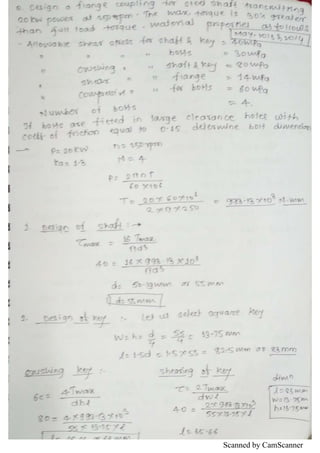 Q. Design a flange coupling for steel shaft transmitting
20 kW power at 250 rpm. The max. torque is 30% greater
than full load torque. material properties as follows
May 2012 & 2014
- Allowable shear stress for shaft & key = 40 MPa
" " " " bolts = 30 MPa
" crushing " " shaft & key = 80 MPa
" shear " " flange = 14 MPa
" compressive " " for bolts = 60 MPa
Number of bolts = 4.
If bolts are fitted in large clearance holes with
coeff of friction equal to 0.15 determine bolt dimension
→ P = 20 kW n = 250 rpm
= 1.3 N = 4
P = 2πnT / 60×10⁶
T = 20×60×10⁶ / 2×π×250 = 993.13×10³ N-mm
1. Design of shaft :→
τmax = 16 Tmax / πd³
40 = 16×993.13×10³ / πd³
d = 50.19 mm or 55 mm
d = 55 mm
2. Design of key :- Let us select square key
W = h = d/4 = 55/4 = 13.75 mm
l = 1.5d = 1.5×55 = 82.5 mm or 83 mm
crushing key :- shearing of key
σc = 4Tmax / dhl τ = 2Tmax / dwl
80 = 4×993.13×10³ / 55×13.75×l 40 = 2×993.13×10³ / 55×13.75×l
l = 65.66
dimn
l = 83 mm
W = 13.75 m
h = 13.75 mm
Scanned by CamScanner